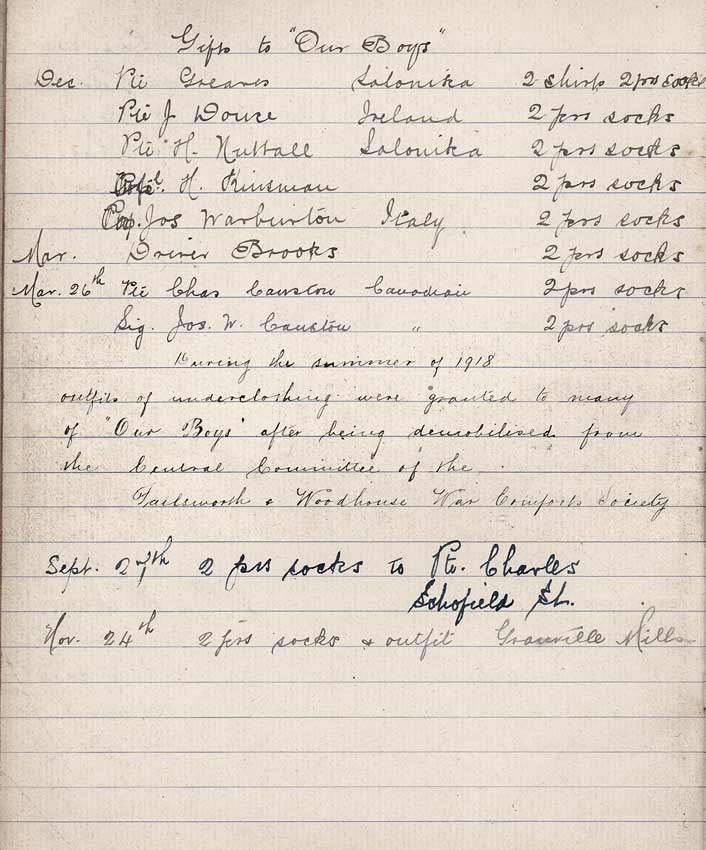 Gifts to "Our Boys"
Dec. Pte Greaves Salonika 2 shirts 2 prs socks
Pte J Douce Ireland 2 prs socks
Pte H. Nuttall Salonika 2 prs socks
H. Kinsman 2 prs socks
Jos Warburton Italy 2 prs socks
Mar. Driver Brooks 2 prs socks
Mar. 26th Pte Chas Causton Canadian 2 prs socks
Sig. Jos. W. Causton " 2 prs socks
During the summer of 1918
outfits of underclothing were granted to many
of "Our Boys" after being demobilised from
the Central Committee of the
Failsworth & Woodhouse War Comforts Society
Sept. 27th 2 prs socks to Pte. Charles
Schofield St.
Nov. 24th 2 prs socks & outfit Granville Mills